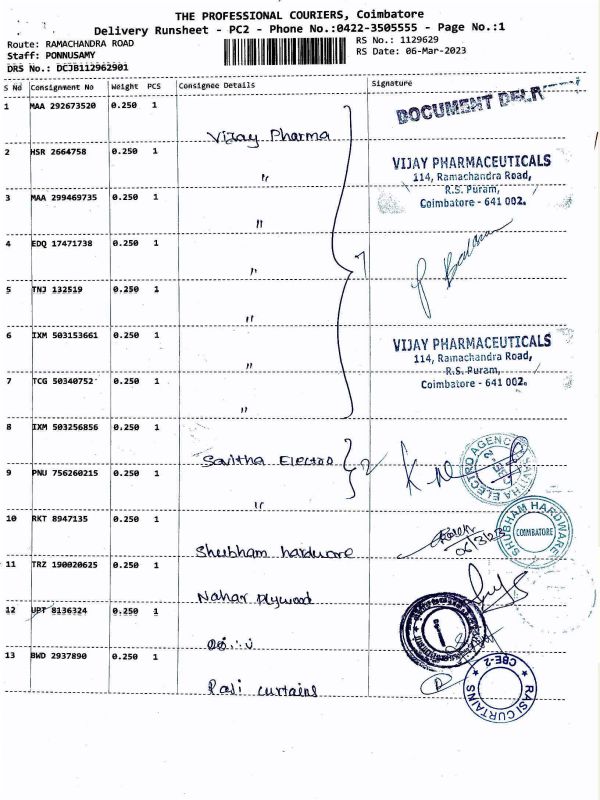 THE PROFESSIONAL COURIERS, Coimbatore
Delivery Runsheet - PC2 - Phone No.:0422-3505555 - Page No.:1
Route: RAMACHANDRA ROAD
RS No.: 1129629
Staff: PONNUSAMY
RS Date: 06-Mar-2023
DRS No.: DCJB112962901
S No Consignment No Weight PCS Consignee Details Signature
1 MAA 292673520 0.250 1
DOCUMENT
Vijay Pharma
2 HSR 2664758 0.250 1
VIJAY PHARMACEUTICALS
114, Ramachandra Road,
R.S. Puram,
Coimbatore - 641 002.
"
3 MAA 299469735 0.250 1
"
4 EDQ 17471738 0.250 1
7
"
5 TNJ 132519 0.250 1
"
6 IXM 503153661 0.250 1
VIJAY PHARMACEUTICALS
114, Ramachandra Road,
R.S. Puram,
Coimbatore - 641 002.
"
7 TCG 50340752 0.250 1
"
8 IXM 503256856 0.250 1
Savitha Electro 2
SAVITHA ELECTRO AGENC
9 PNU 756260215 0.250 1
"
10 RKT 8947135 0.250 1
SHUBHAM HARDWARE
COIMBATORE
Shubham hardware
11 TRZ 190020625 0.250 1
Nahar Plywood
12 UBT 8136324 0.250 1
13 BWD 2937890 0.250 1
Rasi curtains
RASI CURTAINS
CBE-2